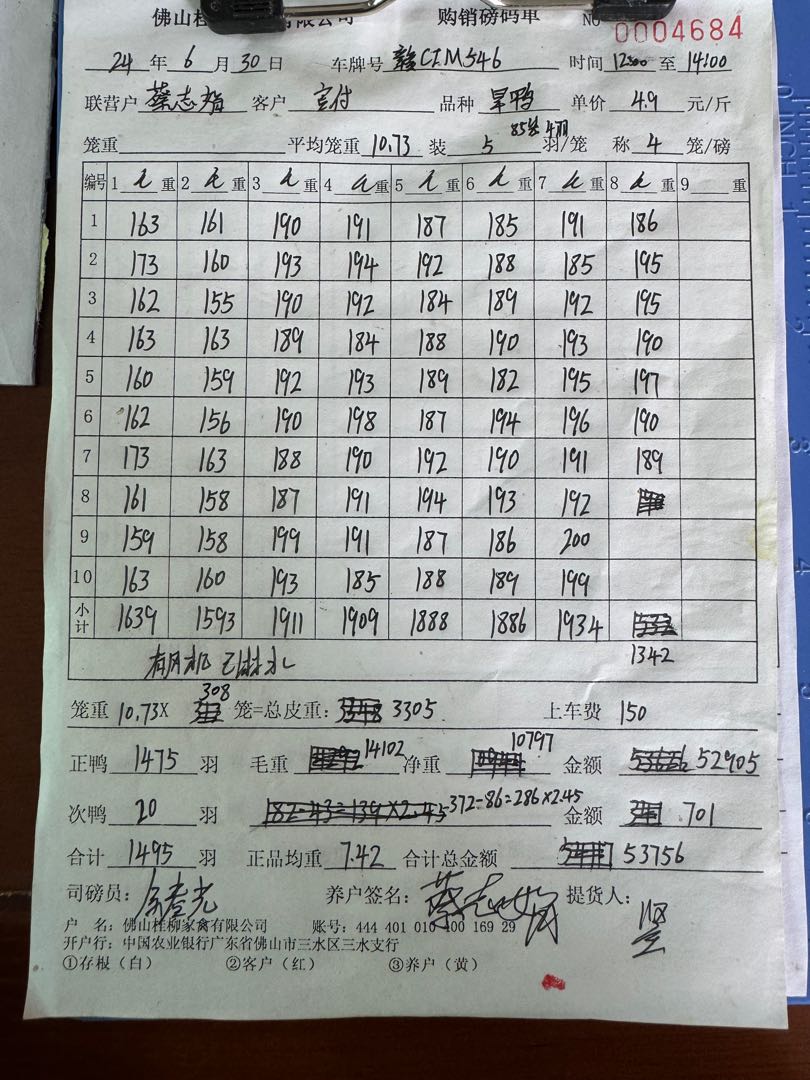 佛山桂 有限公司 购销磅码单 NO 0004684
24 年 6 月 30 日 车牌号 赣CIM546 时间 12:00 至 14:00
联营户 蔡志 客户 客户 品种 旱鸭 单价 4.9 元/斤
85笼4羽
笼重 平均笼重 10.73 装 5 羽/笼 称 4 笼/磅
编号 1 重 2 重 3 重 4 重 5 重 6 重 7 重 8 重 9 重
1 163 161 190 191 187 185 191 186
2 173 160 193 194 192 188 185 195
3 162 155 190 192 184 189 192 195
4 163 163 189 184 188 190 193 190
5 160 159 192 193 189 182 195 197
6 162 156 190 198 187 194 196 190
7 173 163 188 190 192 190 191 189
8 161 158 187 191 194 193 192
9 159 158 199 191 187 186 200
10 163 160 193 185 188 189 199
小计 1639 1593 1911 1909 1888 1886 1934
1342
308
笼重 10.73X 笼=总皮重: 3305 上车费 150
正鸭 1475 羽 毛重 14102 净重 10797 金额 52905
次鸭 20 羽 182-43=139×2.45 372-86=286×2.45 金额 701
合计 1495 羽 正品均重 7.42 合计总金额 53756
司磅员: 养户签名: 提货人:
户 名: 佛山桂柳家禽有限公司 账号: 444 401 010 400 169 29
开户行: 中国农业银行广东省佛山市三水区三水支行
①存根（白） ②客户（红） ③养户（黄）